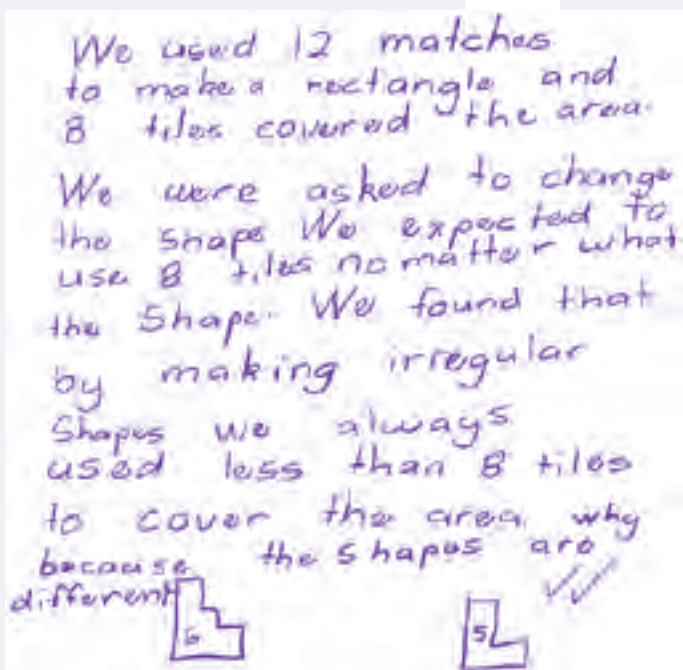 We used 12 matches
to make a rectangle and
8 tiles covered the area.
We were asked to change
the shape We expected to
use 8 tiles no matter what
the Shape. We found that
by making irregular
Shapes we always
used less than 8 tiles
to cover the area. why
because the shapes are
different
6 5